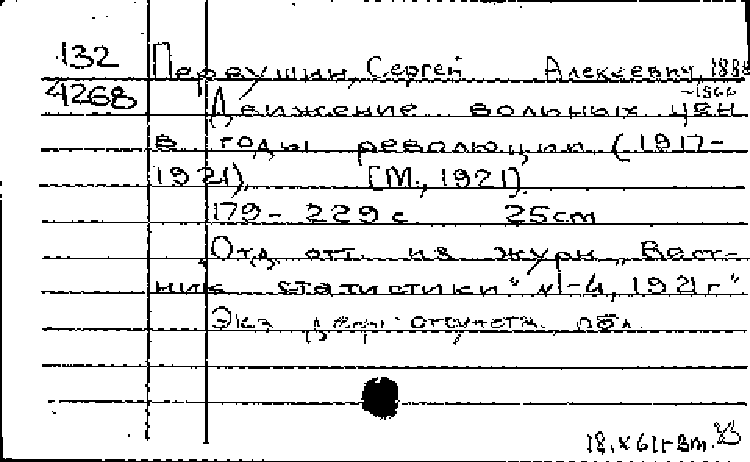 132 Первушин, Сергей Алексеевич, 1888
-1966
4268 Движение вольных цен
в годы революции (1917-
1921). [М., 1921].
179-229 с 25cm
Отд. отт. из журн. „Вест-
ник статистики" №1-4, 1921 г"
Экз. дефк: отсутств. обл.
18.X 61г